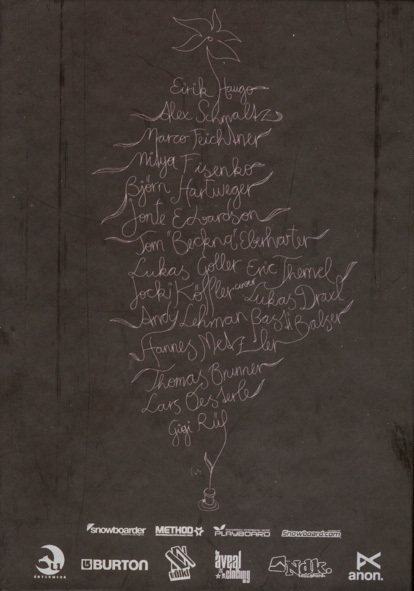 Eirik Haugo
Alex Schmaltz
Marco Feichtner
Mitja Fisenko
Björn Hartweger
Jonte Edvardson
Tom "Beckna" Eberharter
Lukas Goller Eric Themel
Jocki Köffler Lukas Draxl
Andy Lehman Basti Balser
Hannes Metzler
Thomas Brunner
Lars Oesterle
Gigi Rüf
snowboarder METHOD PLAYBOARD Snowboard.com
BURTON aveal clothing Ndk. anon.